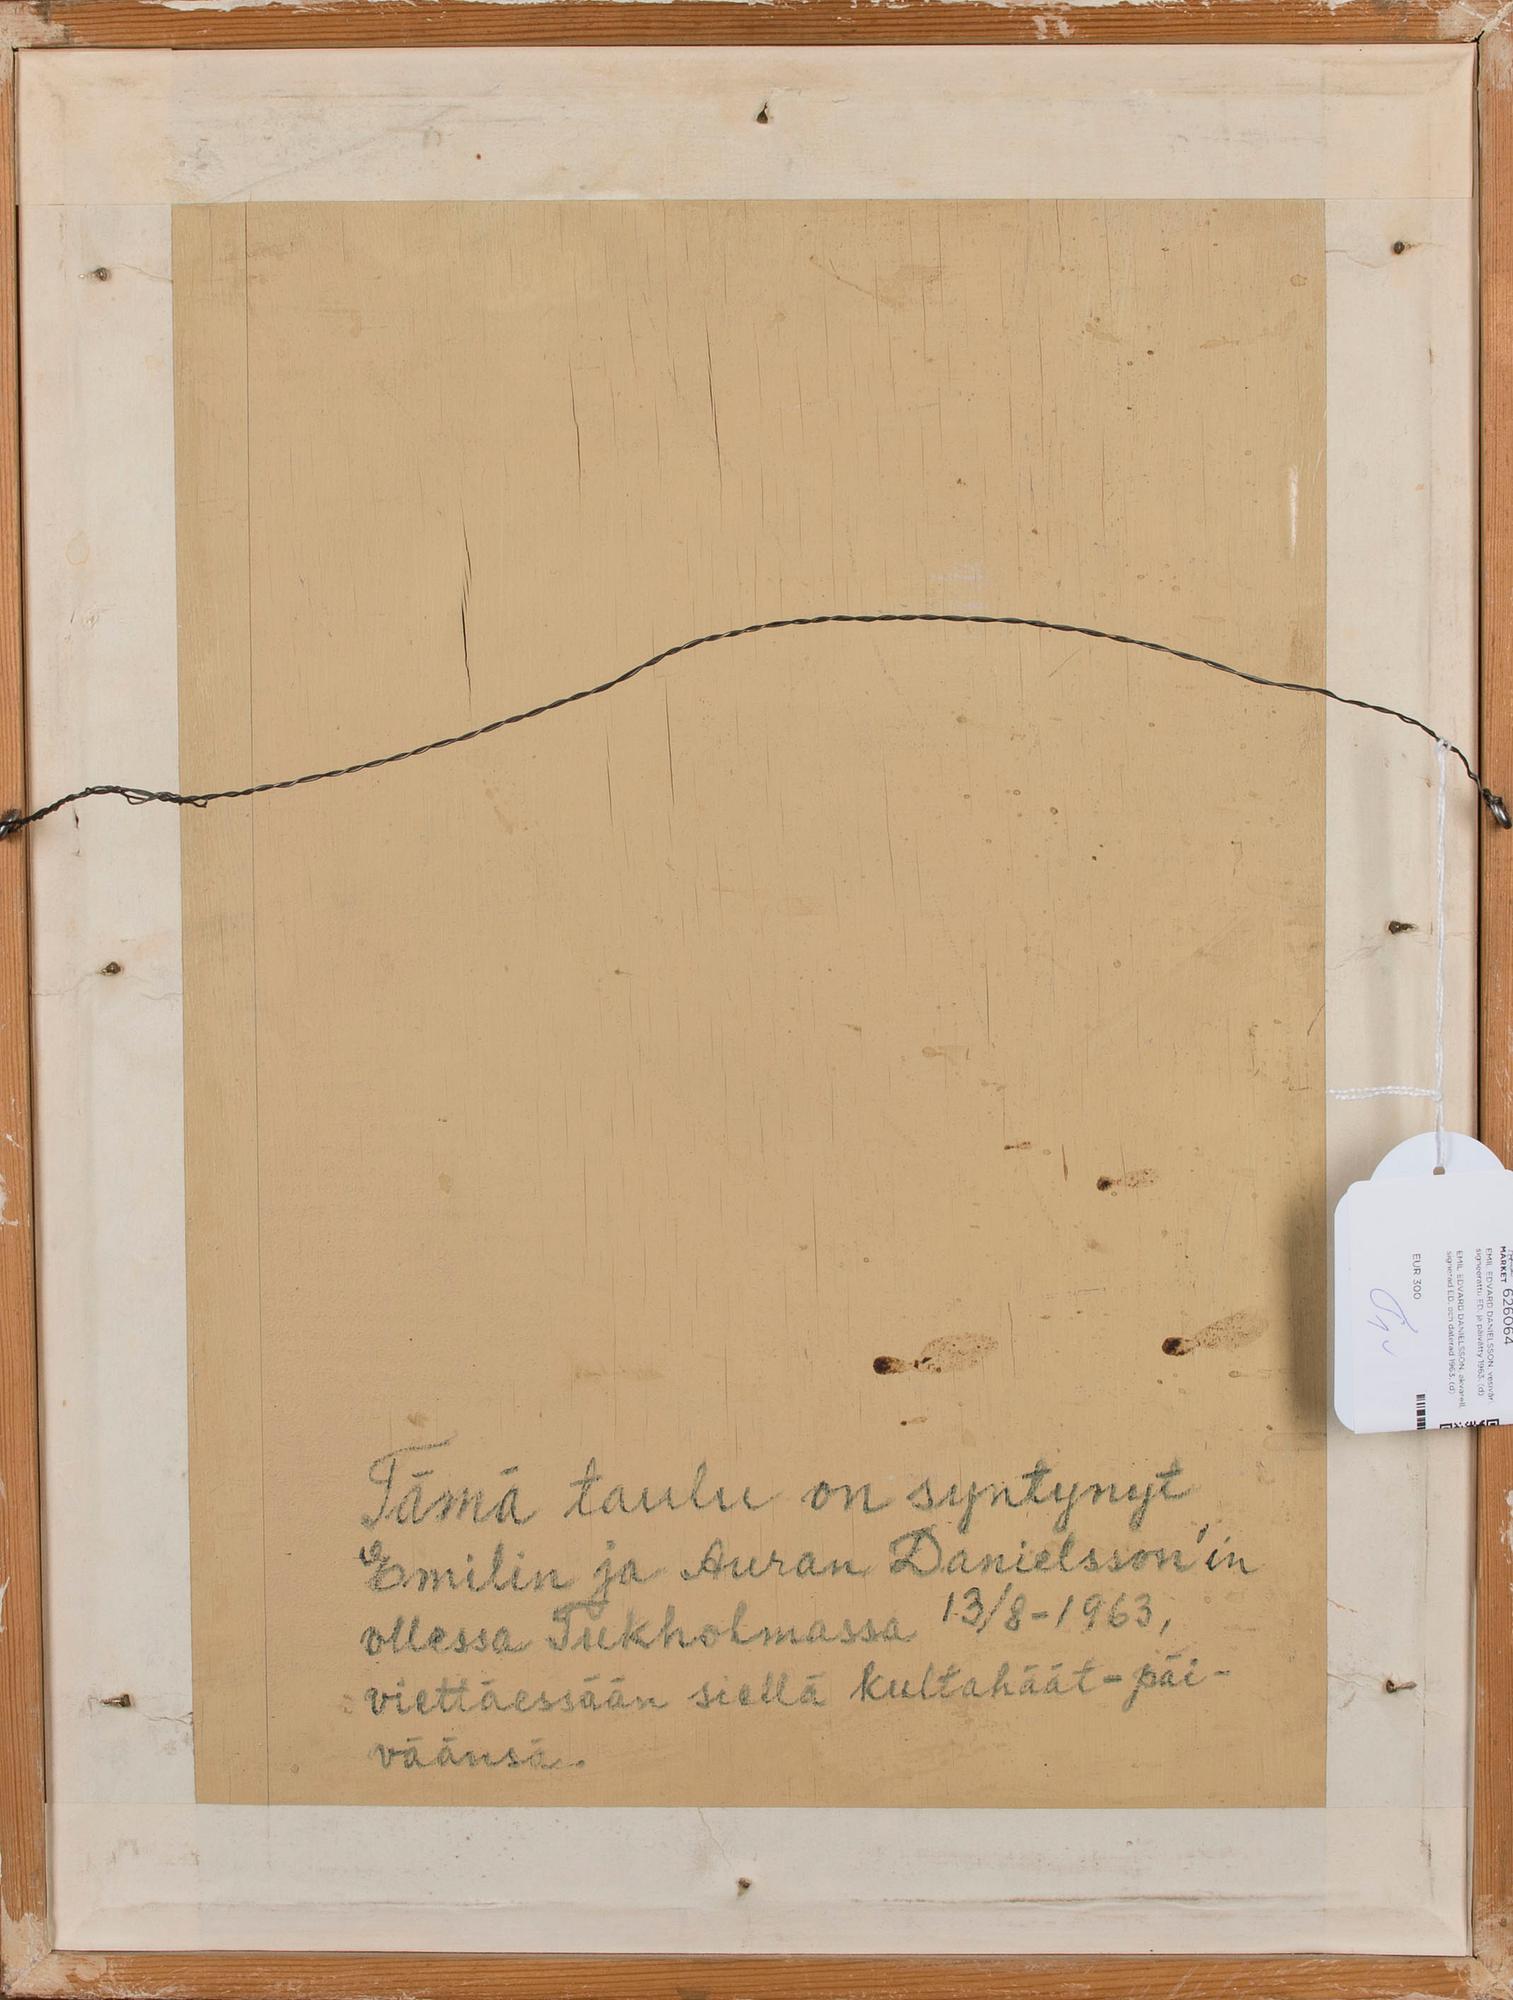 Tämä taulu on syntynyt
Emilin ja Auran Danielsson'in
ollessa Tukholmassa 13/8-1963,
viettäessään siellä kultahäät-päi-
väänsä.
MARKET 626064
EMIL EDVARD DANIELSSON, vesiväri,
signeerattu ED. ja päivätty 1963. (d)
EMIL EDVARD DANIELSSON, akvarell,
signerad ED. och daterad 1963. (d)
EUR 300